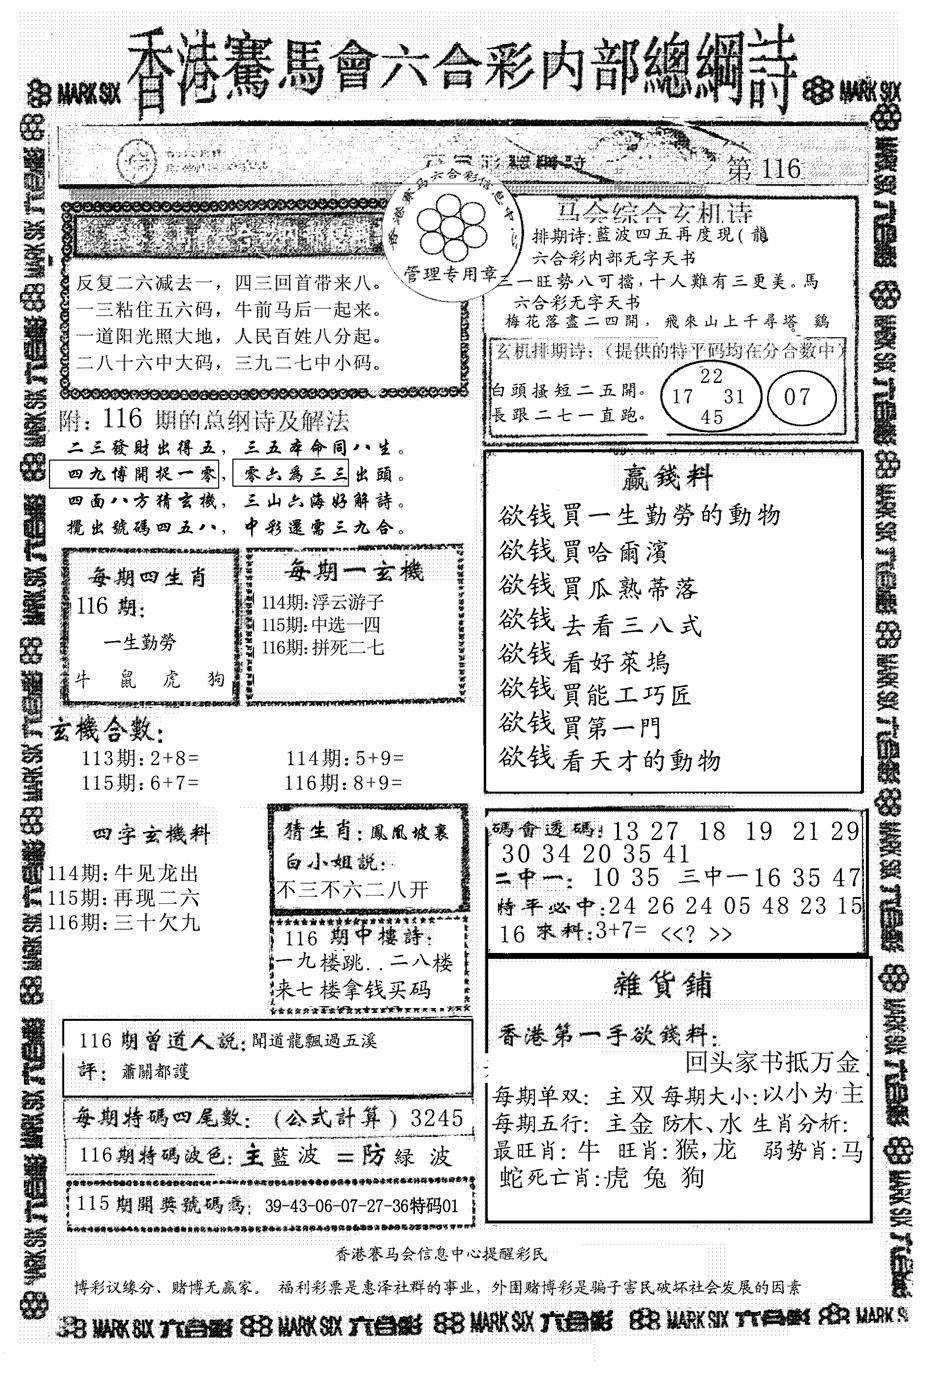 香港賽馬會六合彩内部總綱詩
MARK SIX
MARK SIX
第 116
香港赛马六合彩信息中
管理专用章
马会综合玄机诗
排期诗:藍波四五再度現(龍
六合彩内部无字天书
三一旺勢八可擋,十人難有三更美。馬
六合彩无字天书
梅花落盡二四開，飛來山上千尋塔。鷄
反复二六减去一，四三回首带来八。
一三粘住五六码，牛前马后一起来。
一道阳光照大地，人民百姓八分起。
二八十六中大码，三九二七中小码。
玄机排期诗:（提供的特平码均在分合数中）
白頭搔短二五開。
長跟二七一直跑。
22
17 31
45
07
附: 116 期的总纲诗及解法
二三發財出得五，三五本命同八生。
四九博開捉一零，零六為三三出頭。
四面八方猜玄機，三山六海好解詩。
攪出號碼四五八，中彩還需三九合。
赢錢料
欲钱買一生勤勞的動物
欲钱買哈爾濱
欲钱買瓜熟蒂落
欲钱去看三八式
欲钱看好萊塢
欲钱買能工巧匠
欲钱買第一門
欲钱看天才的動物
每期四生肖
116 期:
一生勤勞
牛 鼠 虎 狗
每期一玄機
114期:浮云游子
115期:中选一四
116期:拼死二七
玄機合數:
113期:2+8= 114期:5+9=
115期:6+7= 116期:8+9=
四字玄機料
114期:牛见龙出
115期:再现二六
116期:三十欠九
猜生肖:鳳凰坡裏
白小姐説:
不三不六二八开
116 期中樓詩:
一九楼跳..二八楼
来七楼拿钱买码
碼會透碼:13 27 18 19 21 29
30 34 20 35 41
二中一: 10 35 三中一16 35 47
特平必中:24 26 24 05 48 23 15
16 來料:3+7= <<? >>
雜貨鋪
香港第一手欲錢料:
回头家书抵万金
每期单双: 主双 每期大小:以小为主
每期五行: 主金 防木、水 生肖分析:
最旺肖: 牛 旺肖:猴,龙 弱势肖:马
蛇死亡肖:虎 兔 狗
116 期曾道人説:聞道龍飄過五溪
評: 蕭關都護
每期特碼四尾數:（公式計算）3245
116期特碼波色:主藍波=防緑波
115期開獎號碼爲: 39-43-06-07-27-36特码01
香港赛马会信息中心提醒彩民
博彩议缘分、赌博无赢家。 福利彩票是惠泽社群的事业，外围赌博彩是骗子害民破坏社会发展的因素
MARK SIX 六合彩 MARK SIX 六合彩 MARK SIX 六合彩 MARK SIX 六合彩 MARK SIX